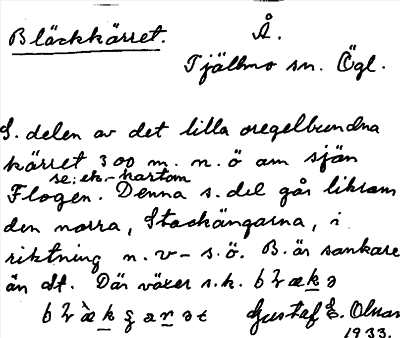 Bläckkärret.
Å.
Tjällmo sn. Ögl.
S. delen av det lilla oregelbundna
kärret 300 m. n. ö om sjön
se; ek.-kartan
Flogen. Denna s. del går liksom
den norra, Stockängarna, i
riktning n. v - s. ö. B. är sankare
än dt. Där växer s. k.
Gustaf E. Olsson
1933.